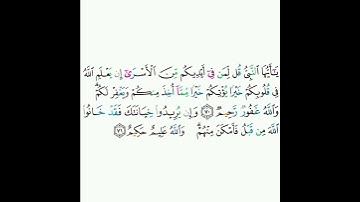 يَٰٓأَيُّهَا ٱلنَّبِيُّ قُل لِّمَن فِيٓ أَيۡدِيكُم مِّنَ ٱلۡأَسۡرَىٰٓ إِن يَعۡلَمِ ٱللَّهُ
فِي قُلُوبِكُمۡ خَيۡرٗا يُؤۡتِكُمۡ خَيۡرٗا مِّمَّآ أُخِذَ مِنكُمۡ وَيَغۡفِرۡ لَكُمۡۚ
وَٱللَّهُ غَفُورٞ رَّحِيمٞ ٧٠ وَإِن يُرِيدُواْ خِيَانَتَكَ فَقَدۡ خَانُواْ
ٱللَّهَ مِن قَبۡلُ فَأَمۡكَنَ مِنۡهُمۡۗ وَٱللَّهُ عَلِيمٌ حَكِيمٌ ٧١